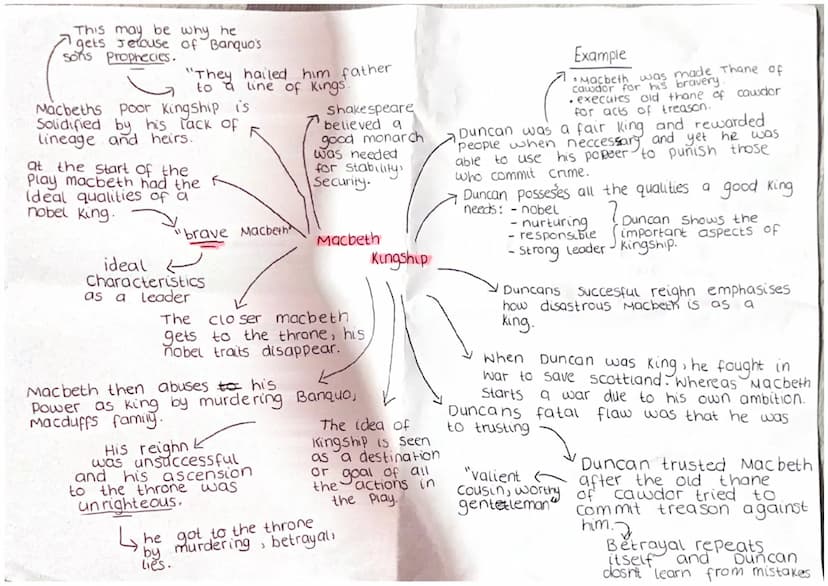 This may be why he
gets jelouse of Banquo's
sons Prophecies.
"They hailed him father
to a line of Kings.
Macbeths poor Kingship is
solidified by his lack of
lineage and heirs.
at the start of the
Play macbeth had the
ideal qualities of a
nobel King.
"brave Macbeth"
ideal
characteristics
as a leader
The closer macbeth
gets to the throne, his
nobel traits disappear.
Macbeth then abuses to his
Power as King by murdering Banquo,
Macduffs family.
His reighn
was unsuccessful
and his ascension
to the throne was
unrighteous.
he got to the throne
by murdering, betrayal,
lies.
Shakespeare
believed a
good monarch
was needed
for stability,
security.
Macbeth
Kingship
The idea of
Kingship is seen
as a destination
or goal of all
the actions in
the Play.
Example
• Macbeth was made Thane of
cawdor for his bravery.
• executes old thane of cawdor
for acts of treason.
Duncan was a fair King and rewarded
people when neccessary and yet he was
able to use his power to punish those
who commit crime.
Duncan posseses all the qualities a good King
needs: - nobel
- nurturing
- responsible
- strong leader
Duncan shows the
important aspects of
Kingship.
Duncans succesful reighn emphasises
how disastrous Macbeth is as a
King.
When Duncan was King, he fought in
war to save scottland. Whereas Macbeth
starts a war due to his own ambition.
Duncans fatal flaw was that he was
to trusting
Duncan trusted Macbeth
after the old thane
of cawdor tried to
commit treason against
him.
"valient
cousin, worthy
gentleman"
Betrayal repeats
itself and Duncan
dosnt learn from mistakes